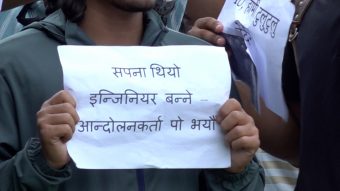 सपना थियो
इन्जिनियर बन्ने –
आन्दोलनकर्ता पो भयौ